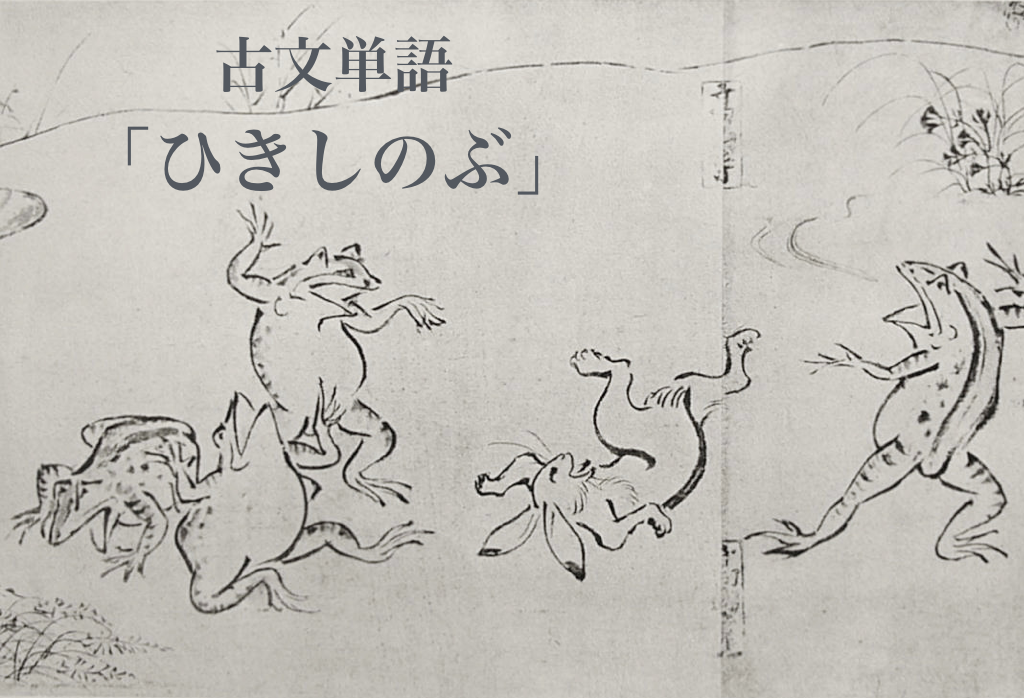 古文単語
「ひきしのぶ」